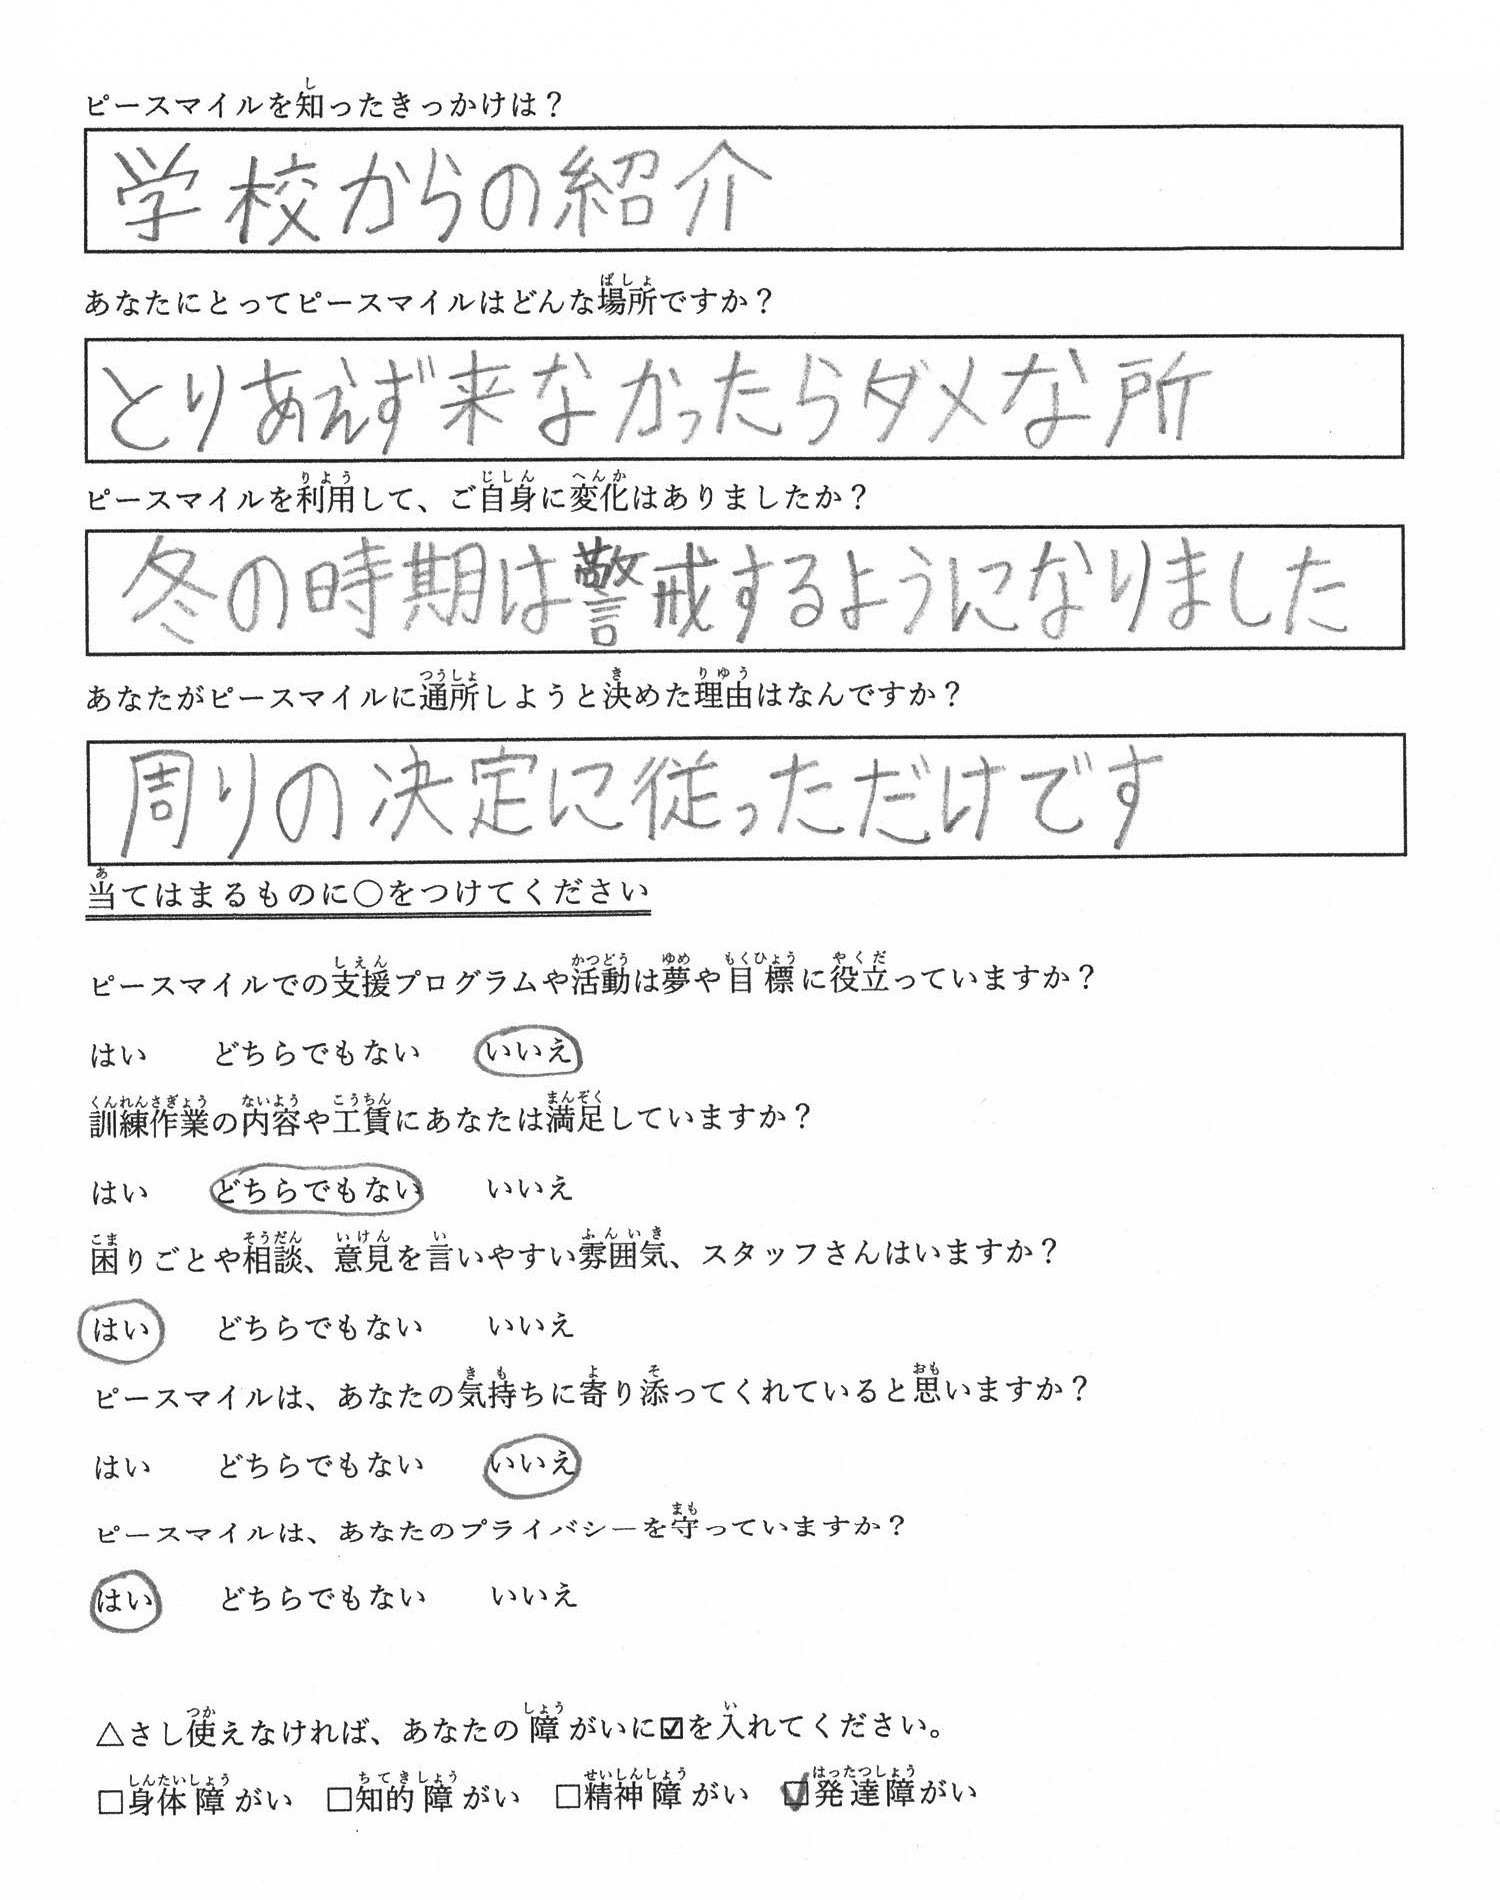 ピースマイルを知ったきっかけは？
学校からの紹介
あなたにとってピースマイルはどんな場所ですか？
とりあえず来なかったらダメな所
ピースマイルを利用して、ご自身に変化はありましたか？
冬の時期は警戒するようになりました
あなたがピースマイルに通所しようと決めた理由はなんですか？
周りの決定に従っただけです
当てはまるものに〇をつけてください
ピースマイルでの支援プログラムや活動は夢や目標に役立っていますか？
はい　どちらでもない　いいえ
訓練作業の内容や工賃にあなたは満足していますか？
はい　どちらでもない　いいえ
困りごとや相談、意見を言いやすい雰囲気、スタッフさんはいますか？
はい　どちらでもない　いいえ
ピースマイルは、あなたの気持ちに寄り添ってくれていると思いますか？
はい　どちらでもない　いいえ
ピースマイルは、あなたのプライバシーを守っていますか？
はい　どちらでもない　いいえ
△さし使えなければ、あなたの障がいに☑を入れてください。
□身体障がい　□知的障がい　□精神障がい　☑発達障がい